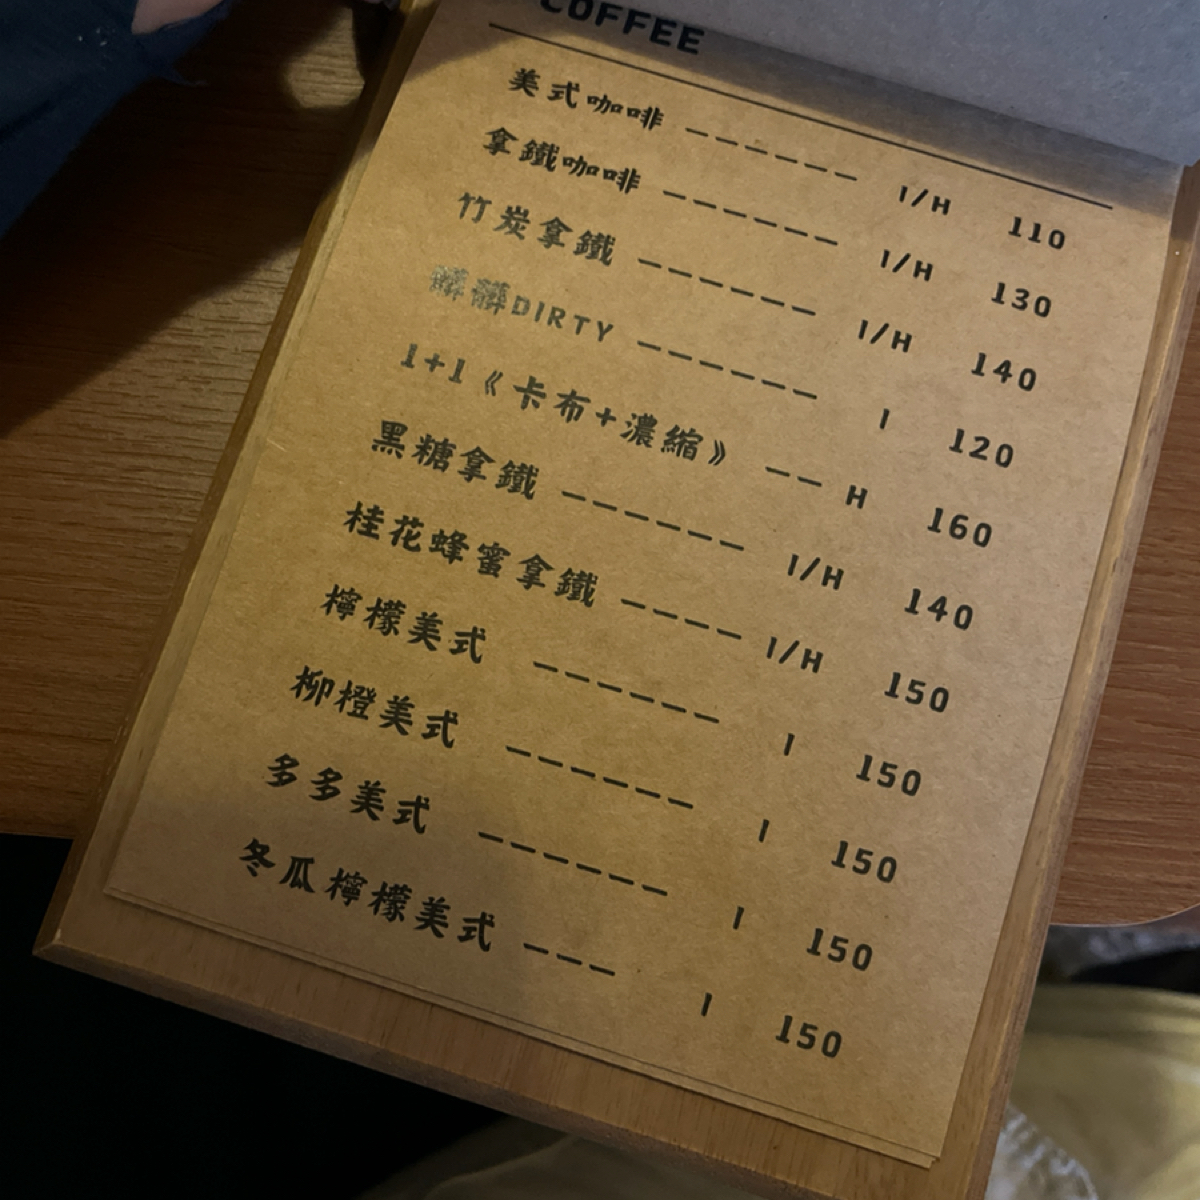 COFFEE
美式咖啡 ------ I/H 110
拿鐵咖啡 ------ I/H 130
竹炭拿鐵 ------ I/H 140
髒髒DIRTY ------ I 120
1+1《卡布+濃縮》 -- H 160
黑糖拿鐵 ------ I/H 140
桂花蜂蜜拿鐵 ---- I/H 150
檸檬美式 ------ I 150
柳橙美式 ------ I 150
多多美式 ------ I 150
冬瓜檸檬美式 --- I 150